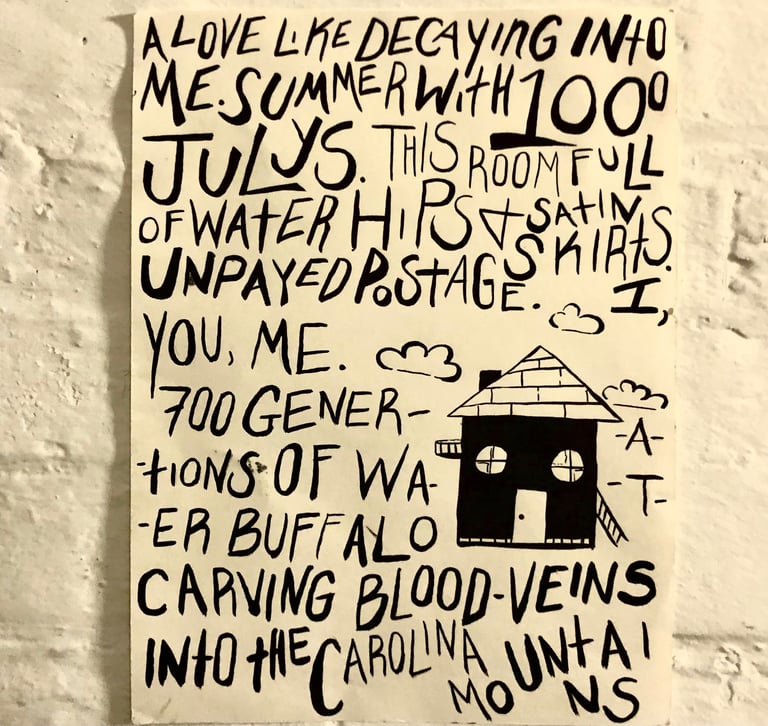 A LOVE LIKE DECAYING INTO
ME. SUMMER WITH 1000
JULYS. THIS ROOM FULL
OF WATER HIPS & SATIN
SKIRTS.
UNPAYED POSTAGE. I,
YOU, ME.
700 GENER-
-A-
-TIONS OF WA-
-T-
-ER BUFFALO
CARVING BLOOD-VEINS
INTO THE CAROLINA MOUNTAINS